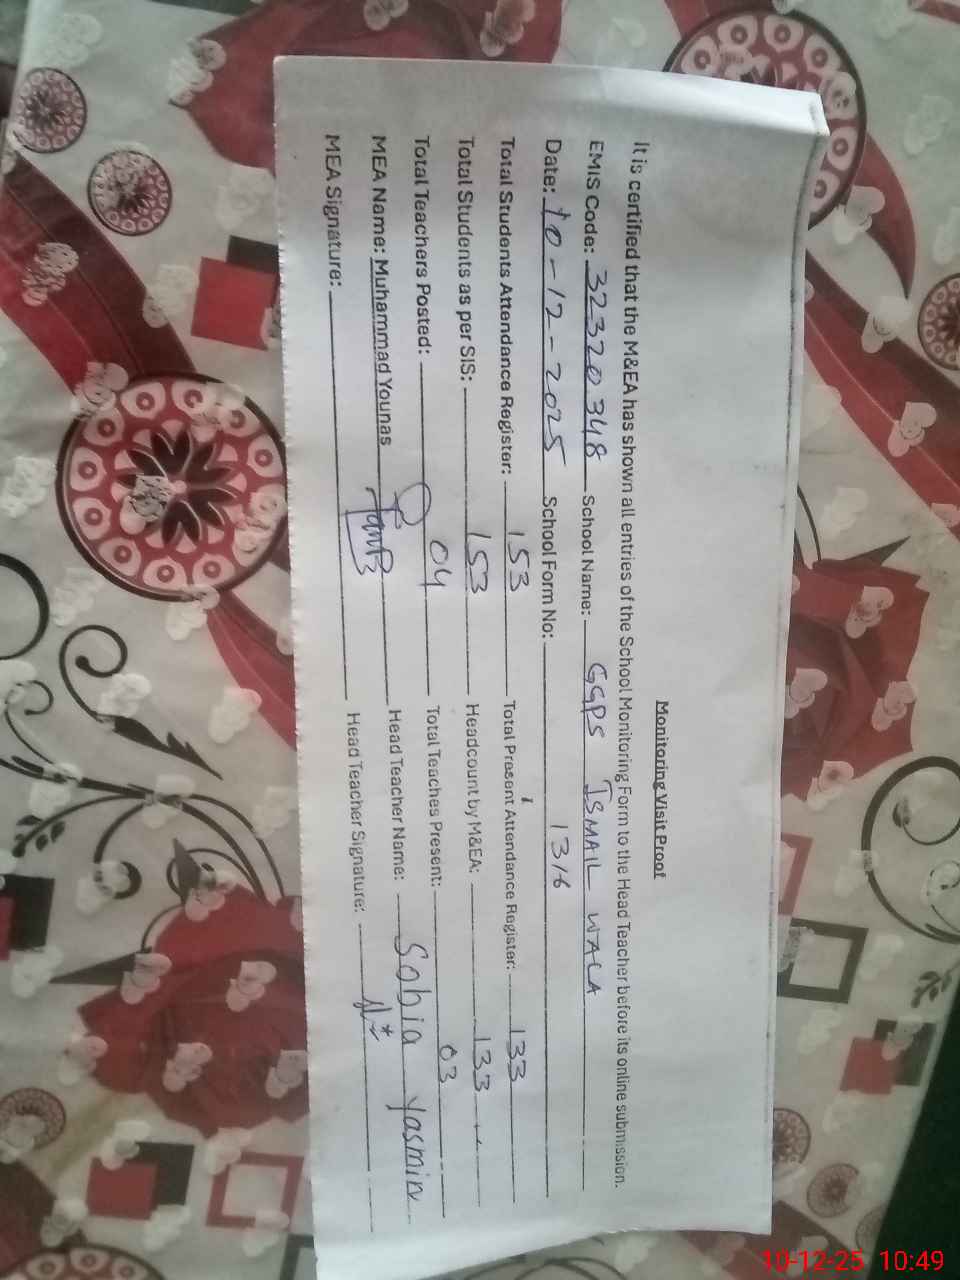 Monitoring Visit Proof
It is certified that the M&EA has shown all entries of the School Monitoring Form to the Head Teacher before its online submission.
EMIS Code: 32320348 School Name: GGPS ISMAIL WALA
Date: 10-12-2025 School Form No: 1316
Total Students Attendance Register: 153 Total Present Attendance Register: 133
Total Students as per SIS: 153 Headcount by M&EA: 133
Total Teachers Posted: 04 Total Teaches Present: 03
MEA Name: Muhammad Younas Head Teacher Name: Sobia Yasmin
MEA Signature: Head Teacher Signature:
10-12-25 10:49